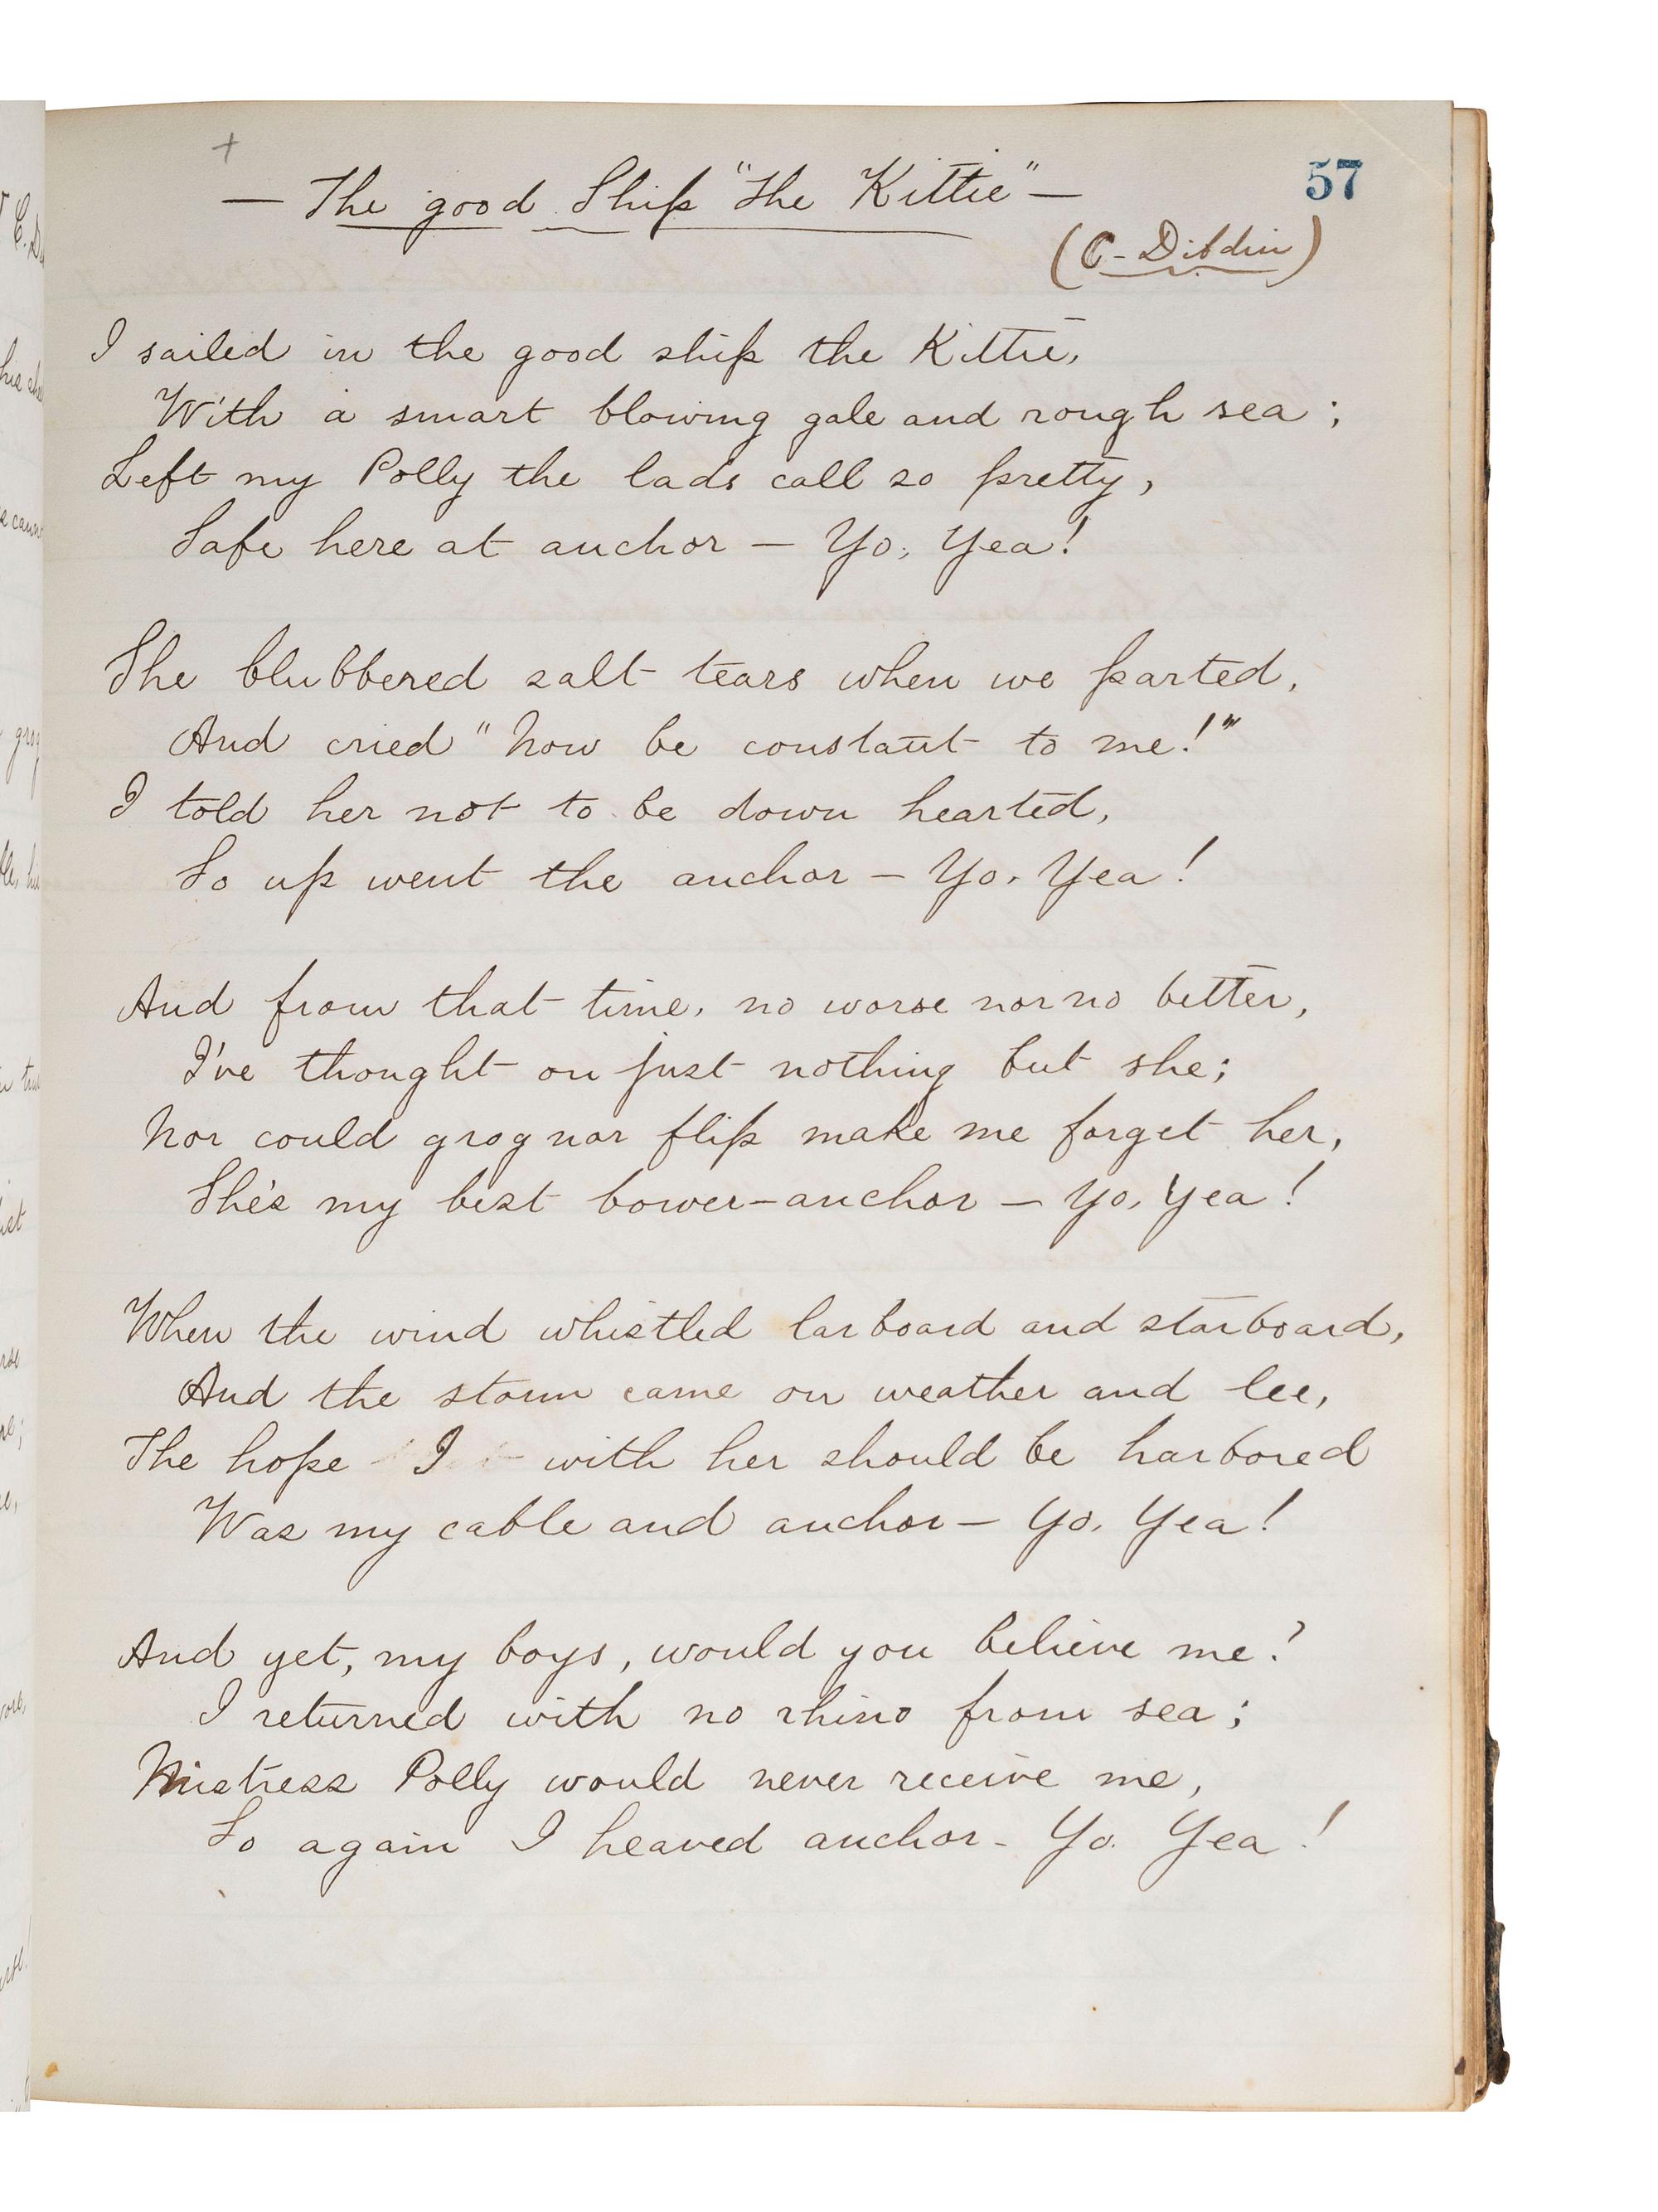 57
— The good Ship "The Kittie" —
(C. Dibdin)
I sailed in the good ship the Kittie,
With a smart blowing gale and rough sea;
Left my Polly the lads call so pretty,
Safe here at anchor — Yo, Yea!
She blubbered salt tears when we parted,
And cried "Now be constant to me!"
I told her not to be down hearted,
So up went the anchor — Yo, Yea!
And from that time, no worse nor no better,
I've thought on just nothing but she;
Nor could grog nor flip make me forget her,
She's my best bower-anchor — Yo, Yea!
When the wind whistled larboard and starboard,
And the storm came on weather and lee,
The hope I with her should be harbored
Was my cable and anchor — Yo, Yea!
And yet, my boys, would you believe me?
I returned with no rhino from sea;
Mistress Polly would never receive me,
So again I heaved anchor - Yo. Yea!